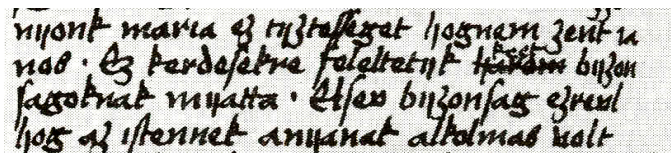 nyonk maria eʒ tyʒtesseget hognem ʒent ia
nos · Eʒ kerdesekre feleltetyk harom keet byʒon
sagoknak myatta · Elsev byʒonsag eʒrevl
hog aʒ istennek anyanak alkolmas volt